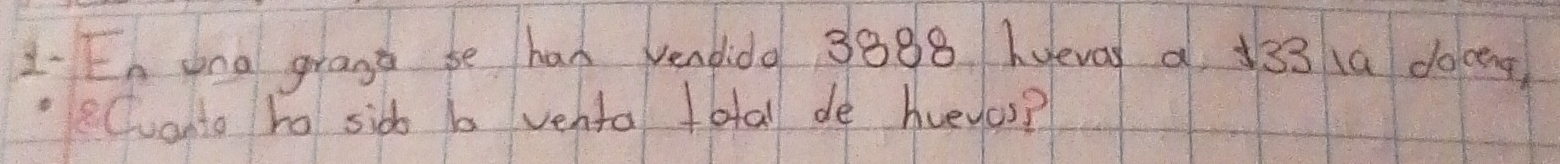 1- En una granja se han vendido 3888 huevos a $33 la docena,
• ¿Cuanto ha sido la venta total de huevos?